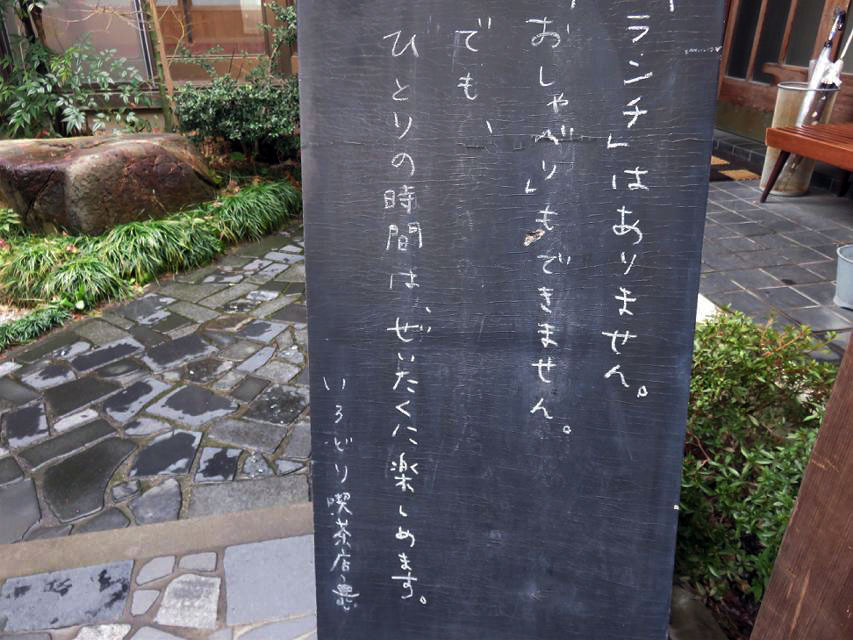 「ランチ」はありません。
「おしゃべり」もできません。
でも、
ひとりの時間は、ぜいたくに楽しめます。
いろどり喫茶店